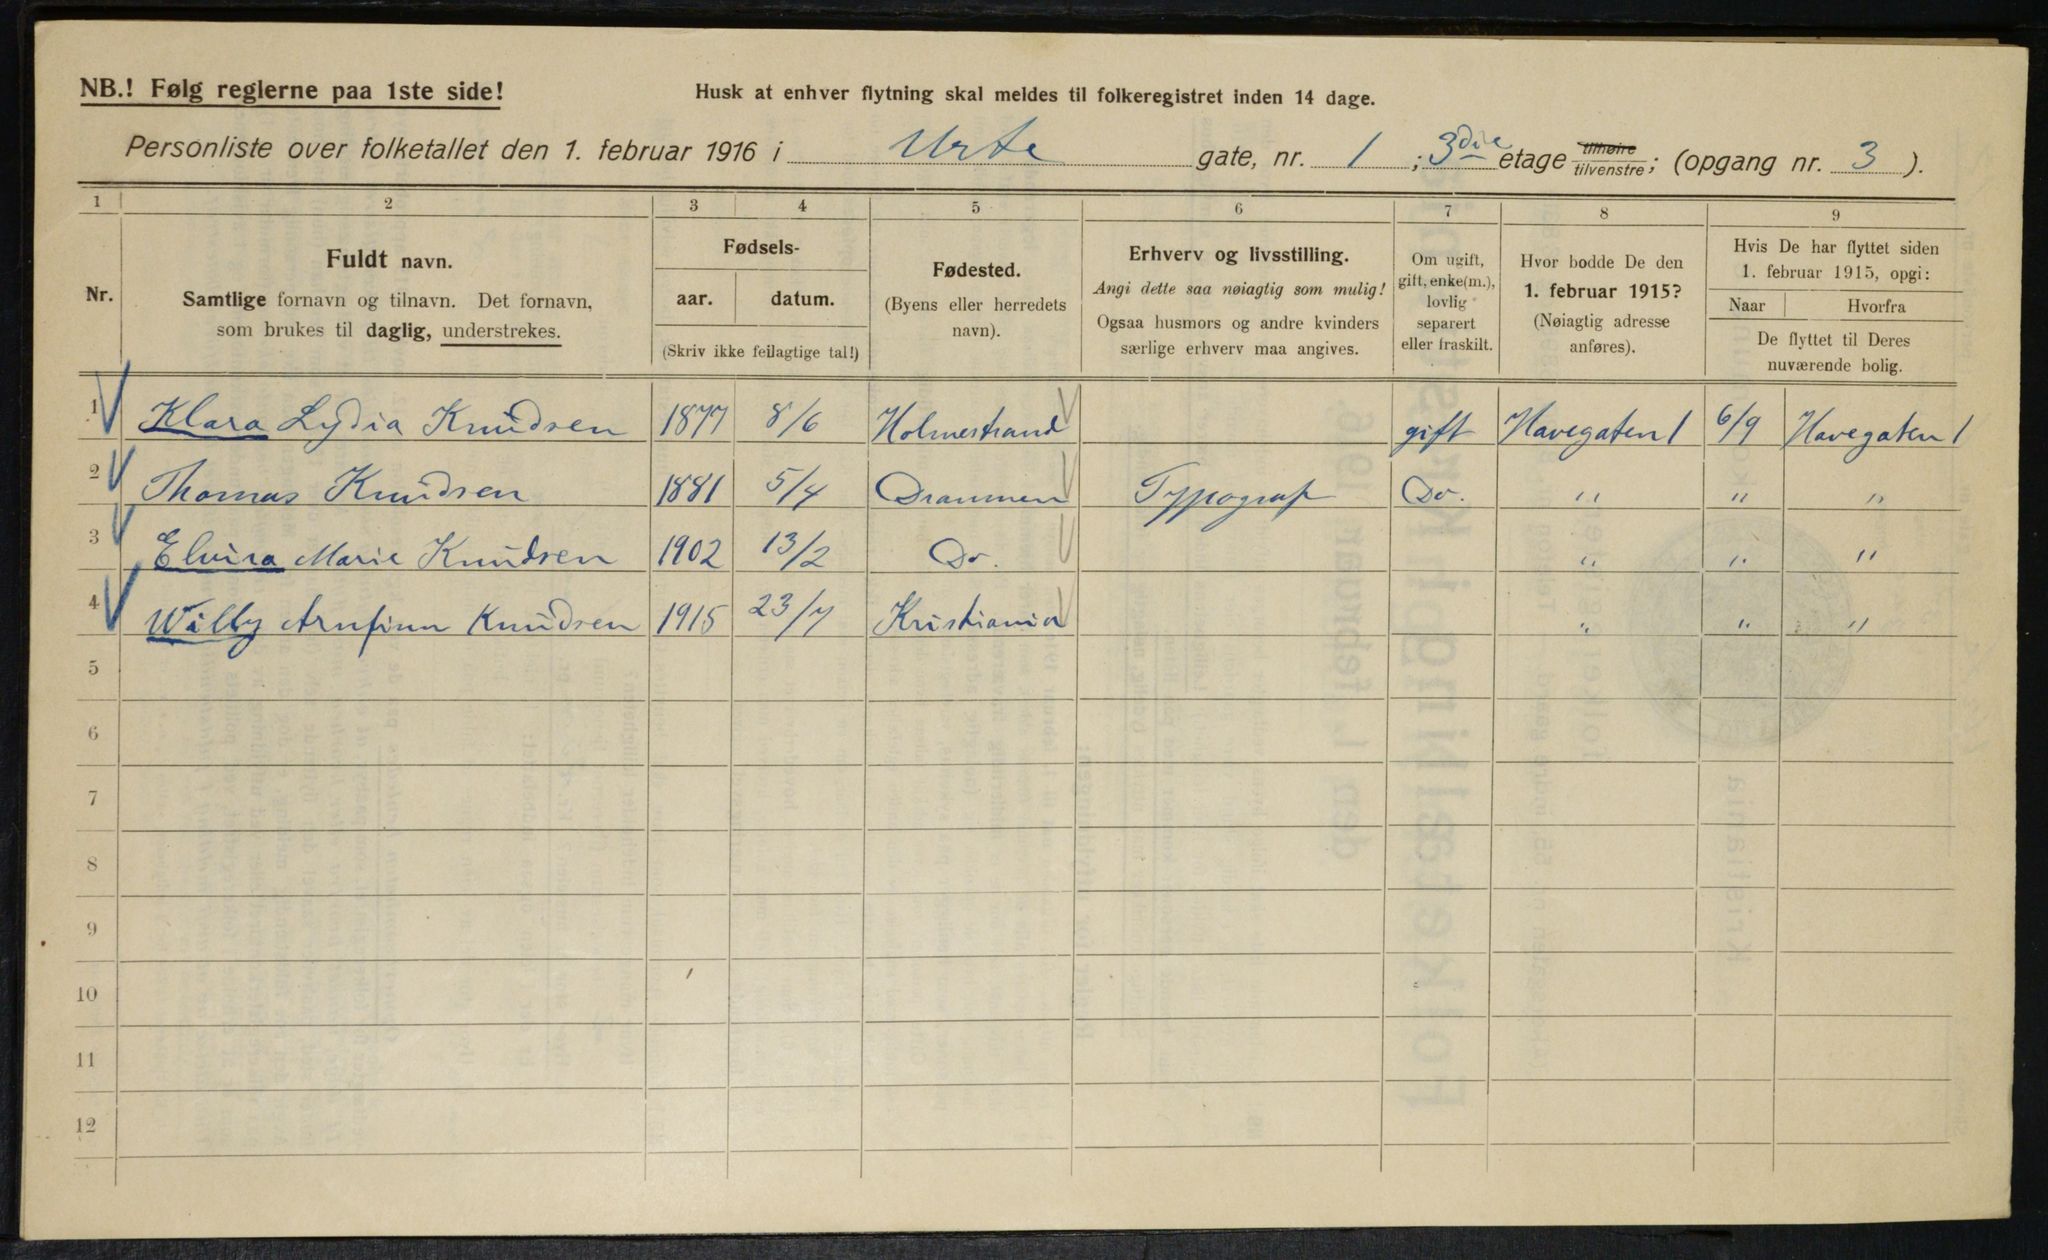 NB.! Følg reglerne paa 1ste side!
Husk at enhver flytning skal meldes til folkeregistret inden 14 dage.
Personliste over folketallet den 1. februar 1916 i Urte gate, nr. 1 ; 3die etage tilhøire tilvenstre; (opgang nr. 3 ).
1 2 3 4 5 6 7 8 9
Nr.
Fuldt navn.
Samtlige fornavn og tilnavn. Det fornavn,
som brukes til daglig, understrekes.
Fødsels-
aar. datum.
(Skriv ikke feilagtige tal!)
Fødested.
(Byens eller herredets
navn).
Erhverv og livsstilling.
Angi dette saa nøiagtig som mulig!
Ogsaa husmors og andre kvinders
særlige erhverv maa angives.
Om ugift,
gift, enke(m.),
lovlig
separert
eller fraskilt.
Hvor bodde De den
1. februar 1915?
(Nøiagtig adresse
anføres).
Hvis De har flyttet siden
1. februar 1915, opgi:
Naar Hvorfra
De flyttet til Deres
nuværende bolig.
1 Klara Lydia Knudsen 1877 8/6 Holmestrand gift Havegaten 1 6/9 Havegaten 1
2 Thomas Knudsen 1881 5/4 Drammen Typograf Do. " " "
3 Elvira Marie Knudsen 1902 13/2 Do. " " "
4 Willy Arnfinn Knudsen 1915 23/7 Kristiania " " "
5
6
7
8
9
10
11
12